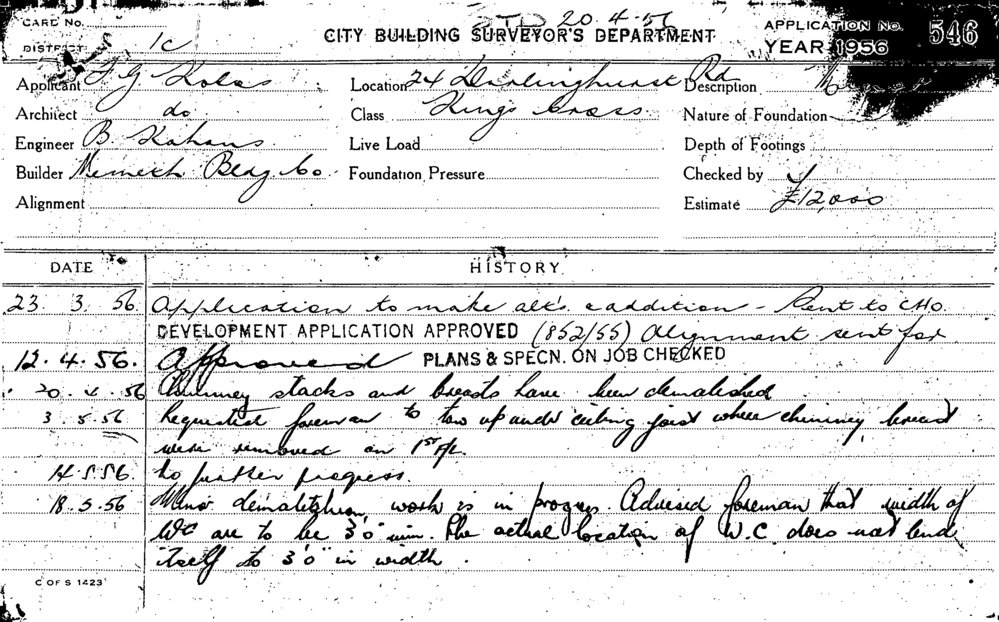 CARD No.
DISTRICT 1c
STD 20.4.56
CITY BUILDING SURVEYOR'S DEPARTMENT
APPLICATION No. 546
YEAR 1956
Applicant F G Kolos
Architect do
Engineer B. Kahans
Builder Nemeth Bldg Co.
Alignment
Location 24 Darlinghurst Rd
Class Kings Cross
Live Load
Foundation Pressure
Description
Nature of Foundation
Depth of Footings
Checked by
Estimate £12,000
DATE HISTORY
23. 3. 56 Application to make alt's & addition - Sent to CHO.
DEVELOPMENT APPLICATION APPROVED (852/55) Alignment sent for
12.4.56. Approved PLANS & SPECN. ON JOB CHECKED
20.4.56 Chimney stacks and breasts have been demolished
3.5.56 Requested foreman to tow up under ceiling joist where chimney breast
were removed on 1st F/L.
14.5.56. No further progress.
18.5.56 Minor demolition work is in progress. Advised foreman that width of
WC are to be 3'0" min. The actual location of W.C. does not lend
itself to 3'0" in width.
C OF S 1423